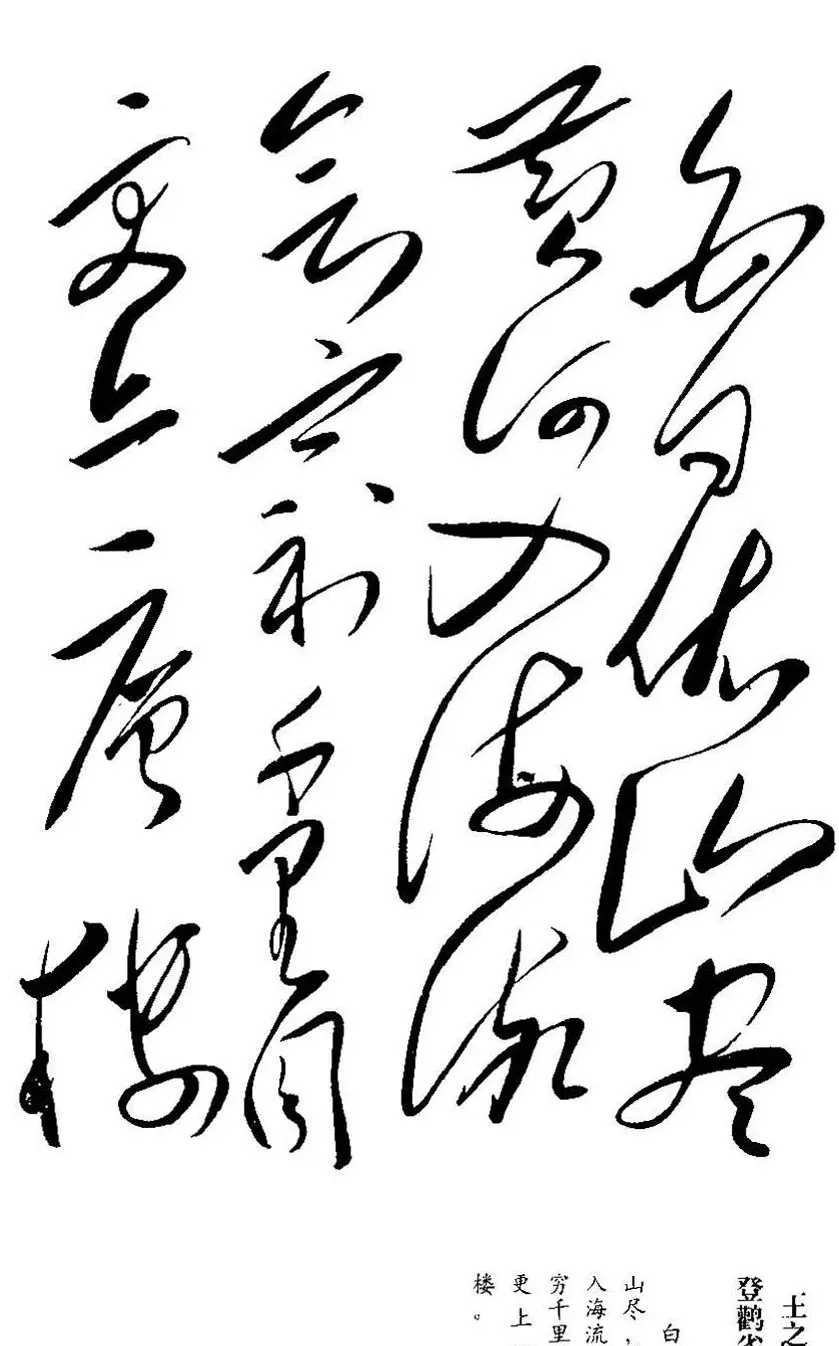 白日依山尽
黄河入海流
欲穷千里目
更上一层楼
王之
登鹳雀
白
山尽，
入海流
穷千里
更上
楼。